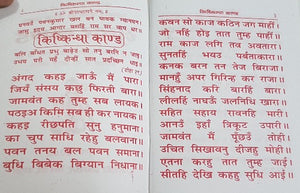 किष्किन्धा काण्ड
अंगद कहइ जाउँ मैं पारा।
जियँ संसय कछु फिरती बारा।
जामवंत कह तुम्ह सब लायक।
पठइअ किमि सब ही कर नायक।
कहइ रीछपति सुनु हनुमाना।
का चुप साधि रहेहु बलवाना।
पवन तनय बल पवन समाना।
बुधि बिबेक बिग्यान निधाना।
कवन सो काज कठिन जग माहीं।
जो नहिं होइ तात तुम्ह पाहीं।
राम काज लगि तव अवतारा।
सुनतहिं भयउ पर्बताकारा।
कनक बरन तन तेज बिराजा।
मानहुँ अपर गिरिन्ह कर राजा।
सिंहनाद करि बारहिं बारा।
लीलहिं नाघउँ जलनिधि खारा।
सहित सहाय रावनहि मारी।
आनउँ इहाँ त्रिकूट उपारी।
जामवंत मैं पूँछउँ तोही।
उचित सिखावनु दीजहु मोही।
एतना करहु तात तुम्ह जाई।
सीतहि देखि कहहु सुधि आई।